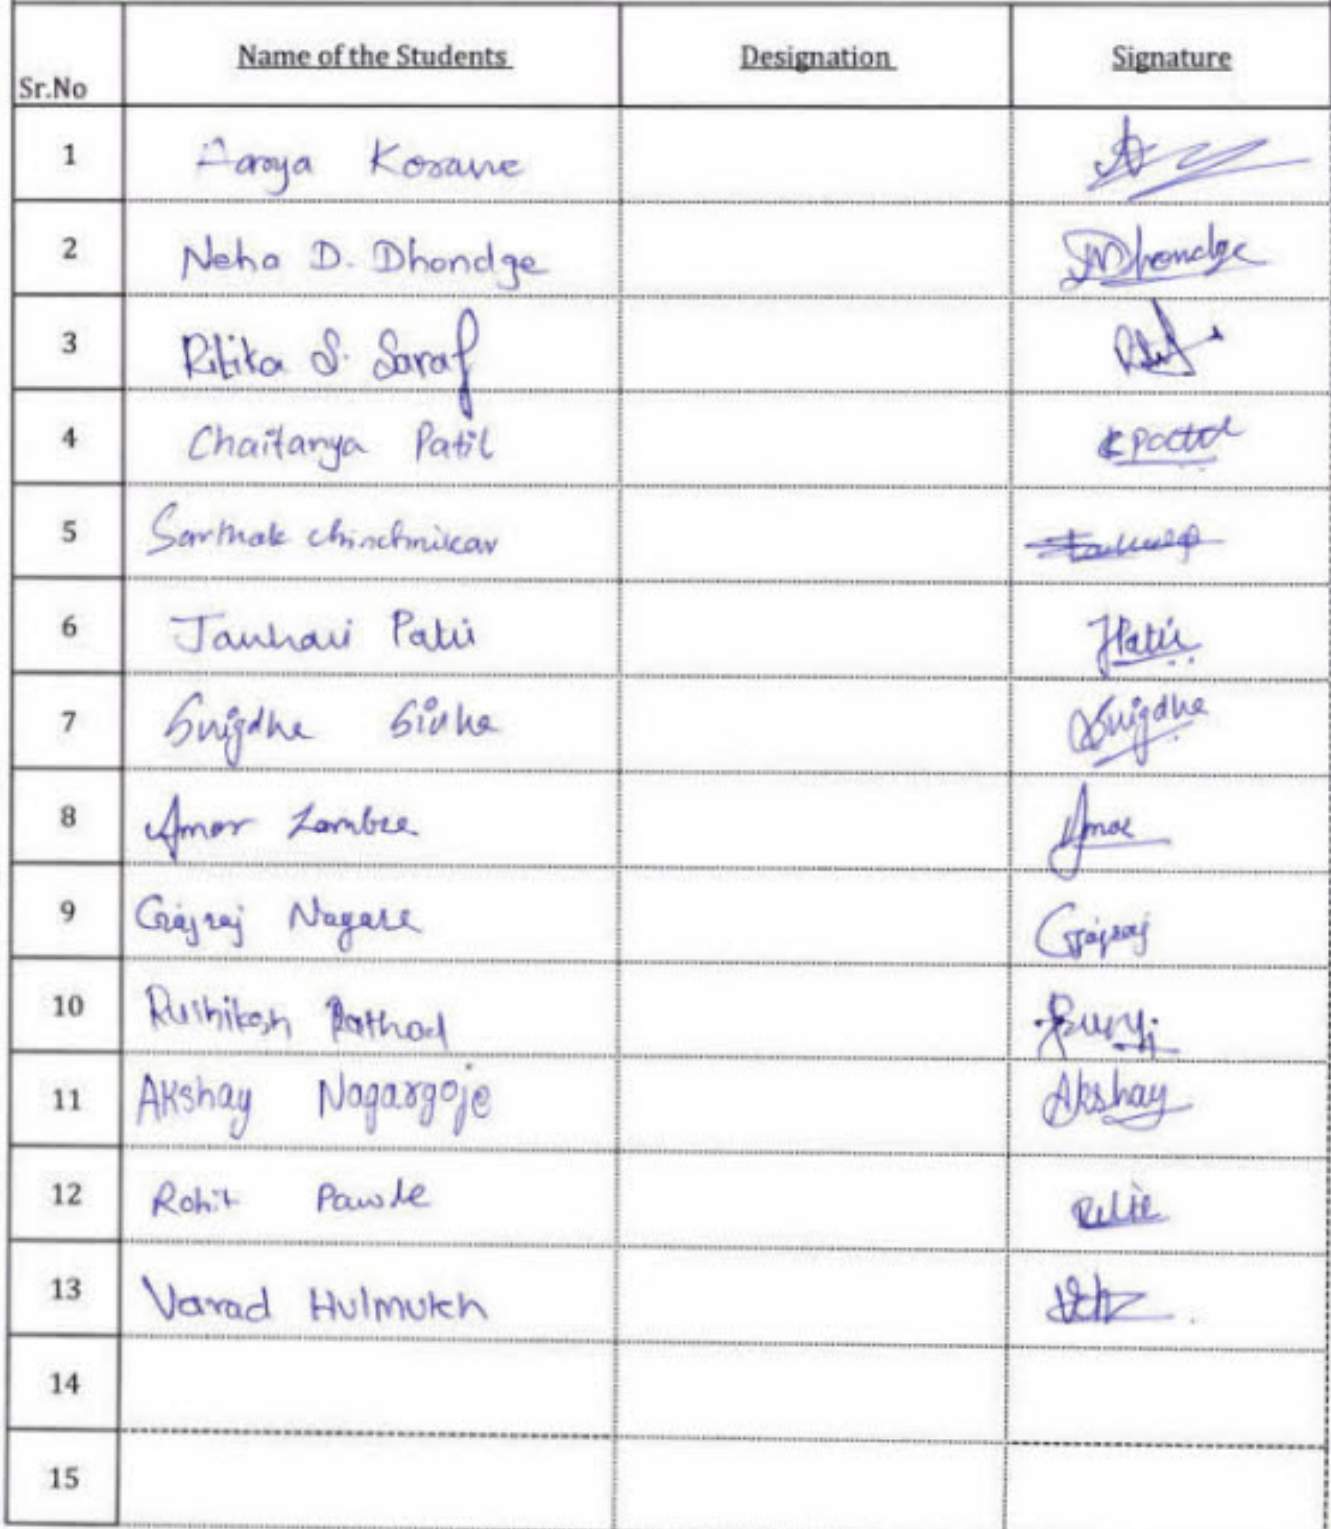 Sr.No Name of the Students Designation Signature
1 Aarya Korane
2 Neha D. Dhondge NDhondge
3 Ritika S. Saraf
4 Chaitanya Patil CPatil
5 Sarthak chinchnikar
6 Janhavi Patil JPatil
7 Snigdha Sinha Snigdha
8 Amar Zambre Amar
9 Gajraj Nagare Gajraj
10 Rushikesh Rathod
11 Akshay Nagargoje Akshay
12 Rohit Pawde
13 Varad Hulmukh
14
15